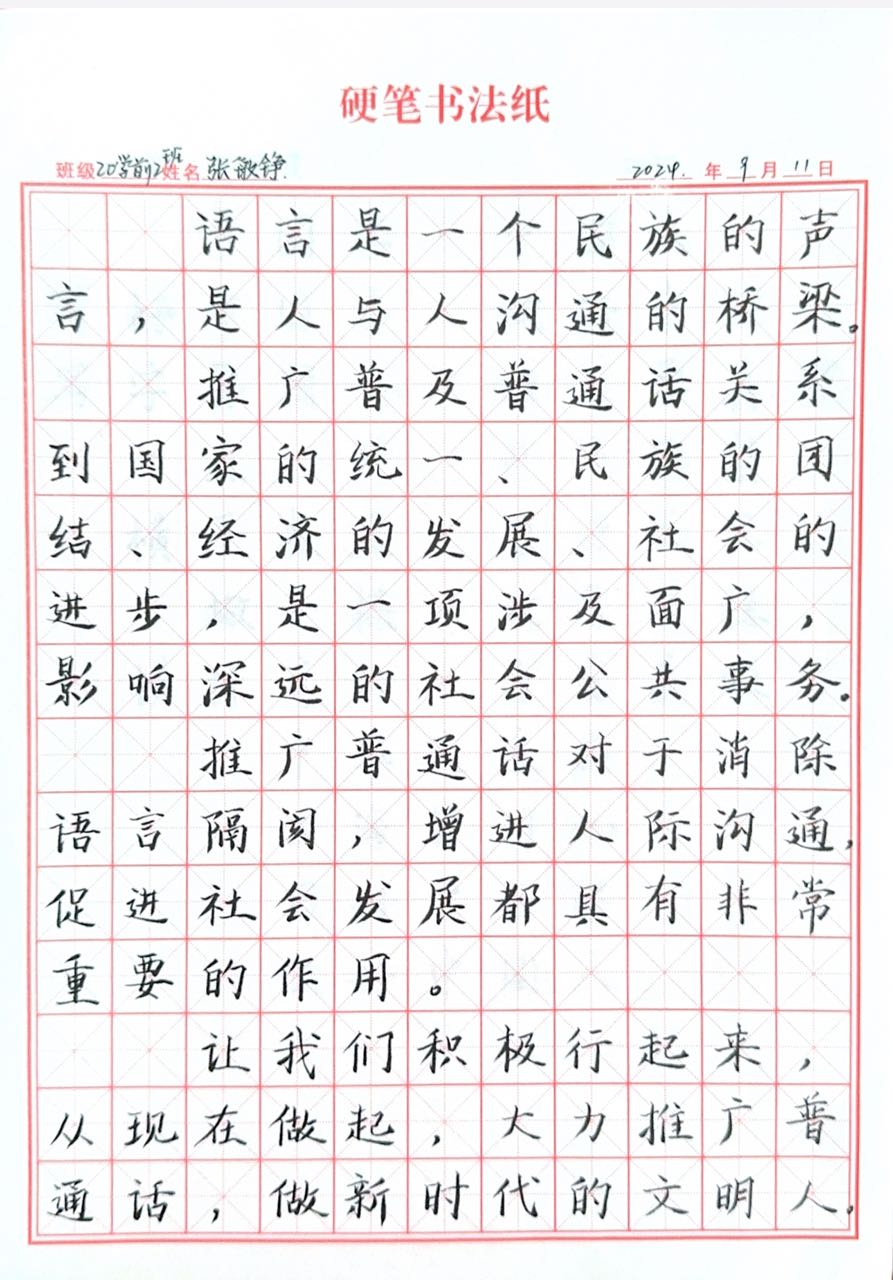 硬笔书法纸
班级20学前2班姓名张敏铮. 2024.年9月11日
语言是一个民族的声
言，是人与人沟通的桥梁。
推广普及普通话关系
到国家的统一、民族的团
结、经济的发展、社会的
进步，是一项涉及面广，
影响深远的社会公共事务。
推广普通话对于消除
语言隔阂，增进人际沟通，
促进社会发展都具有非常
重要的作用。
让我们积极行起来，
从现在做起，大力推广普
通话，做新时代的文明人。